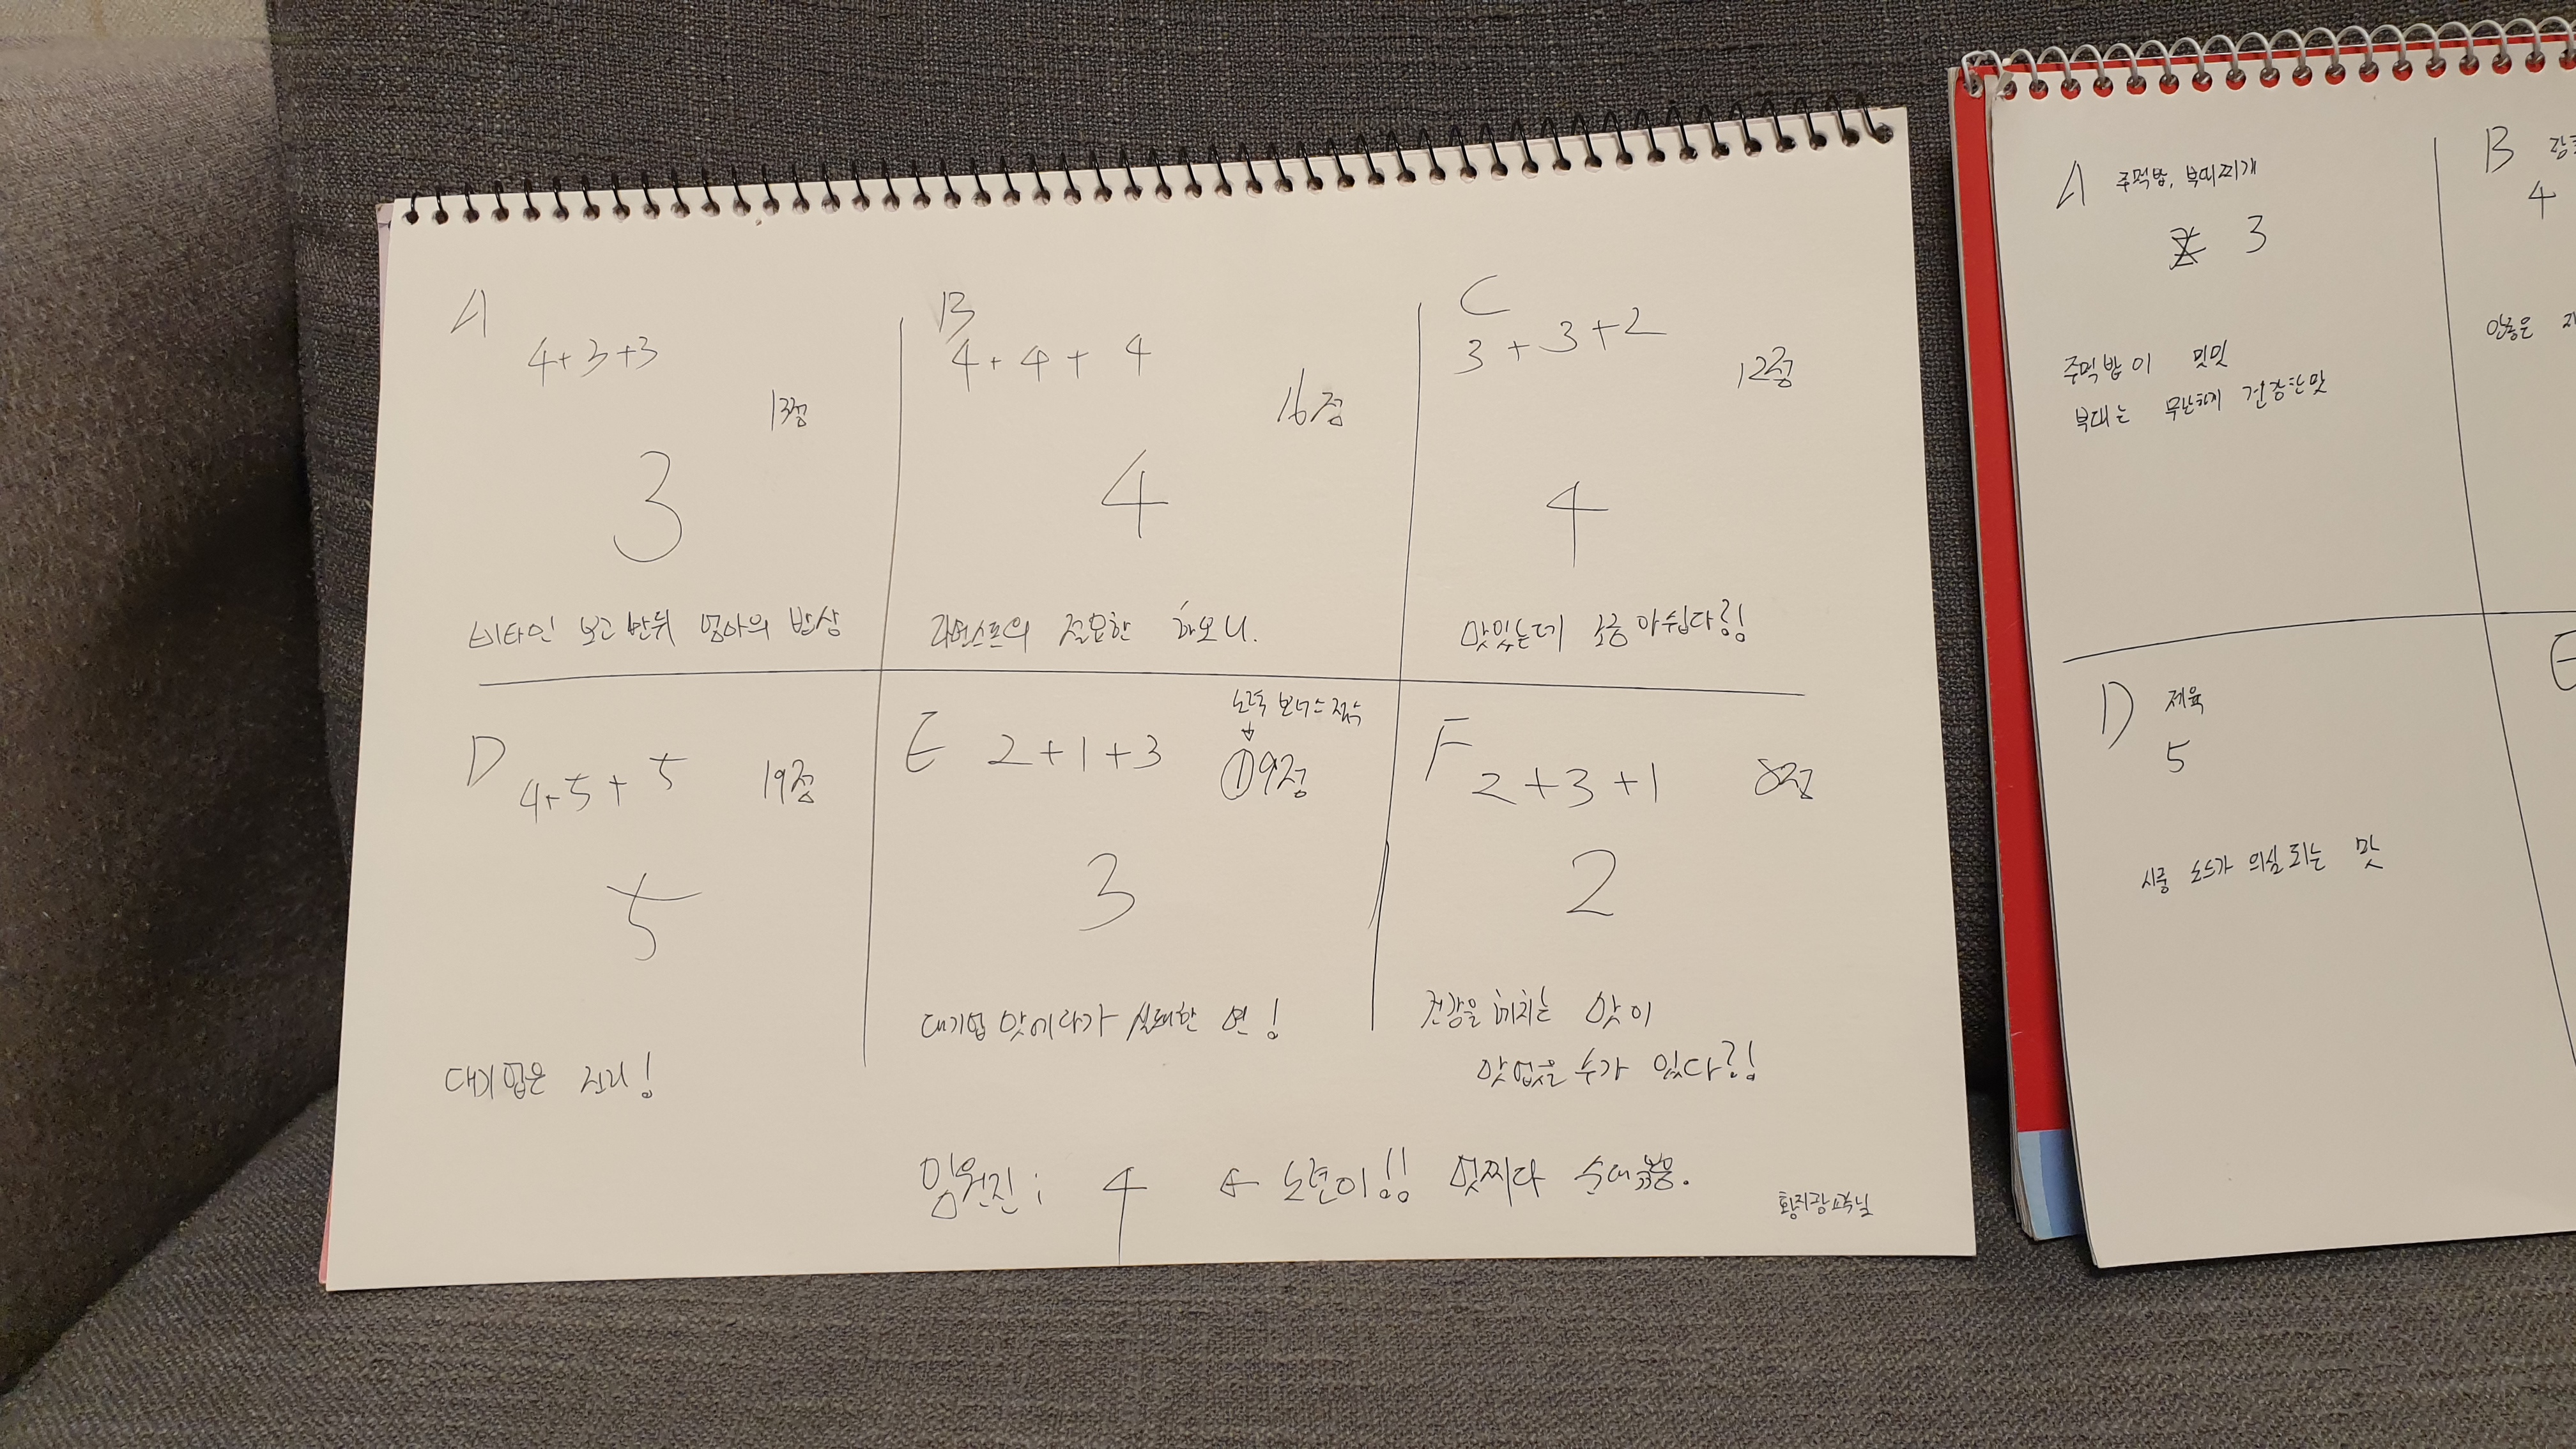 A
4+3+3
13점
3
비타민 보고 반뒤 엄마의 밥상
B
4+4+4
16점
4
라면스프의 절묘한 하모니.
C
3+3+2
12점
4
맛있는데 조금 아쉽다!!
D
4+5+5
19점
5
대기업은 진리!
E 2+1+3
노력 보너스 점수
↓
①9점
3
대기업 맛에다가 실패한 면!
F
2+3+1
8점
2
건강을 해치는 맛이
맛없을 수가 있다!!
임원진: 4 ← 노련이!! 멋찌다 순대볶음.
황지광교수님
A 주먹밥, 부대찌개
3
주먹밥이 밋밋
부대는 무난하게 건강한맛
B
4
D 제육
5
시중 소스가 의심되는 맛
E